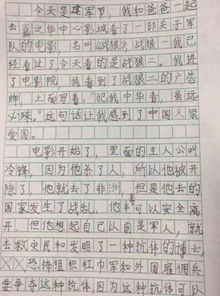 今天是建军节，我和爸爸一起
去新之华中心影城看了一部关于军
队的电影，名叫《战狼》，战狼一我已
经看过了今天看的是战狼二。我进
了电影院，我看到了战狼二的广告
牌，上面写着：“犯我中华者，虽远
必殊。”这句话让我感到了中国人很
爱国。
电影开始了，里面的主人公叫
冷锋，因为他杀了人，所以他被开
除了，他就去了非洲，但是他去的
国家发生了战乱，他本可以安全离
开，但他想起自己以前是军人，就
去救灾民和发明了一种抗体的博士
恐怖组织红巾军和外国雇佣兵
要争夺这种抗体因为这种抗体可以